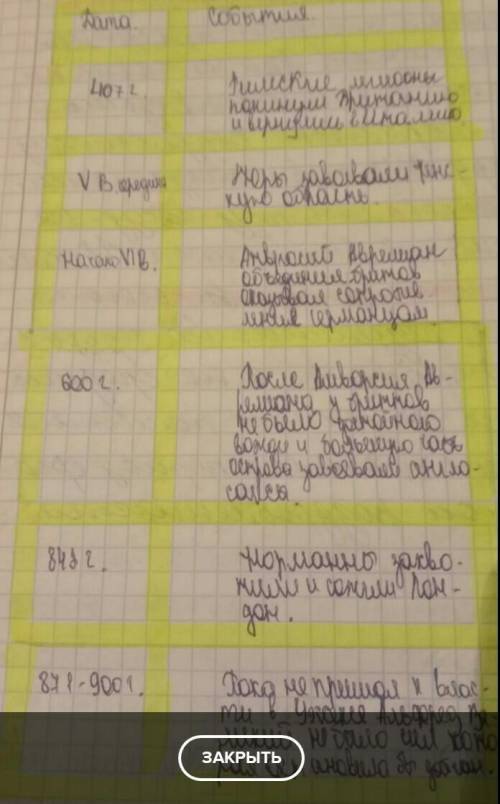 Дата.
События.
407 г.
Римские легионы
покинули Британию
и вернулись в Италию.
V в. середина
Юры завоевали
кую область.
Начало VI в.
Амвросий Аврелиан
объединил бритов
оказывая сопротив
ления германцам.
600 г.
После Амвросия Ав-
релиана у бриттов
не было
вождя и большую часть
острова завоевали англо-
саксы.
г.
Норманны захва-
тили и сожгли Лон-
дон.
871-900 г.
Пока не пришёл к влас-
ти в Уэссексе Альфред Ве-
ликий не было сил кото
рая остановила бы
ЗАКРЫТЬ